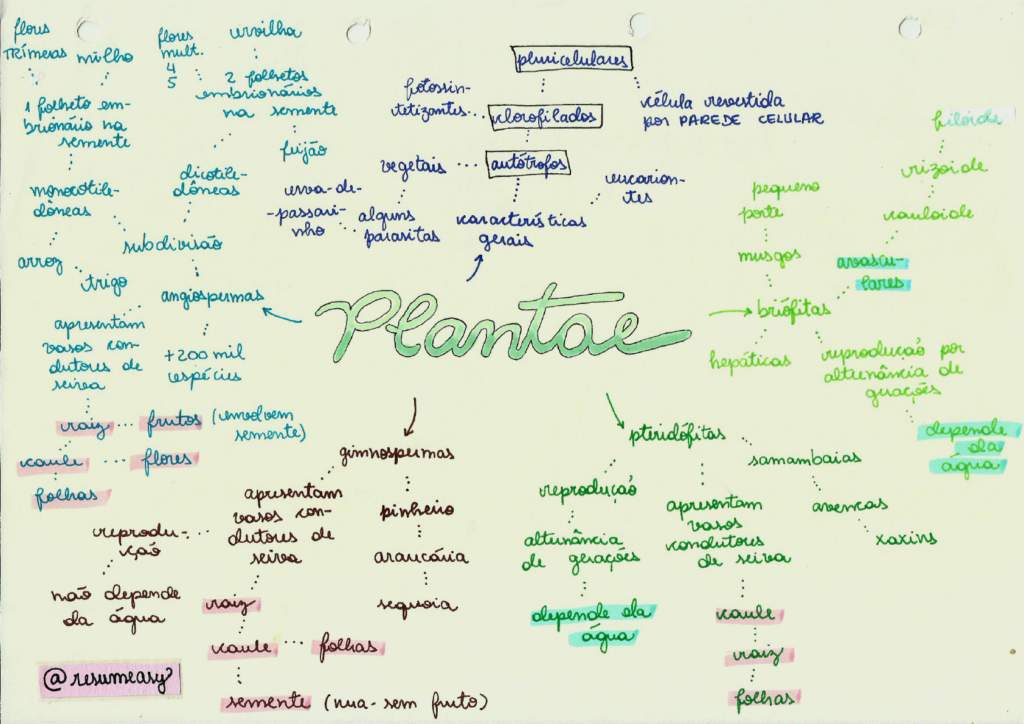 flores
TRÍMERAS
milho
1 folheto em-
brionário na
semente
monocotile-
dôneas
arroz
trigo
flores
mult.
4
5
ervilha
2 folhetos
embrionários
na semente
feijão
dicotile-
dôneas
subdivisão
angiospermas
+ 200 mil
espécies
apresentam
vasos con-
dutores de
seiva
raiz
frutos (envolvem
semente)
caule
flores
folhas
pluricelulares
fotossin-
tetizantes
clorofilados
célula revestida
por PAREDE CELULAR
vegetais
autótrofos
erva-de-
-passari-
nho
alguns
parasitas
características
gerais
eucarion-
tes
Plantae
filóide
rizoide
cauloide
avascu-
lares
pequeno
porte
musgos
briófitas
hepáticas
reprodução por
alternância de
gerações
depende
da
água
gimnospermas
apresentam
vasos con-
dutores de
seiva
reprodu-
ção
não depende
da água
raiz
caule
folhas
semente (nua-sem fruto)
pinheiro
araucária
sequoia
pteridófitas
samambaias
avencas
xaxins
reprodução
alternância
de gerações
depende da
água
apresentam
vasos
condutores
de seiva
caule
raiz
folhas
@resumeasy